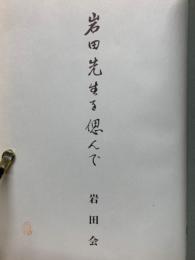 岩田先生を偲んで
岩田会